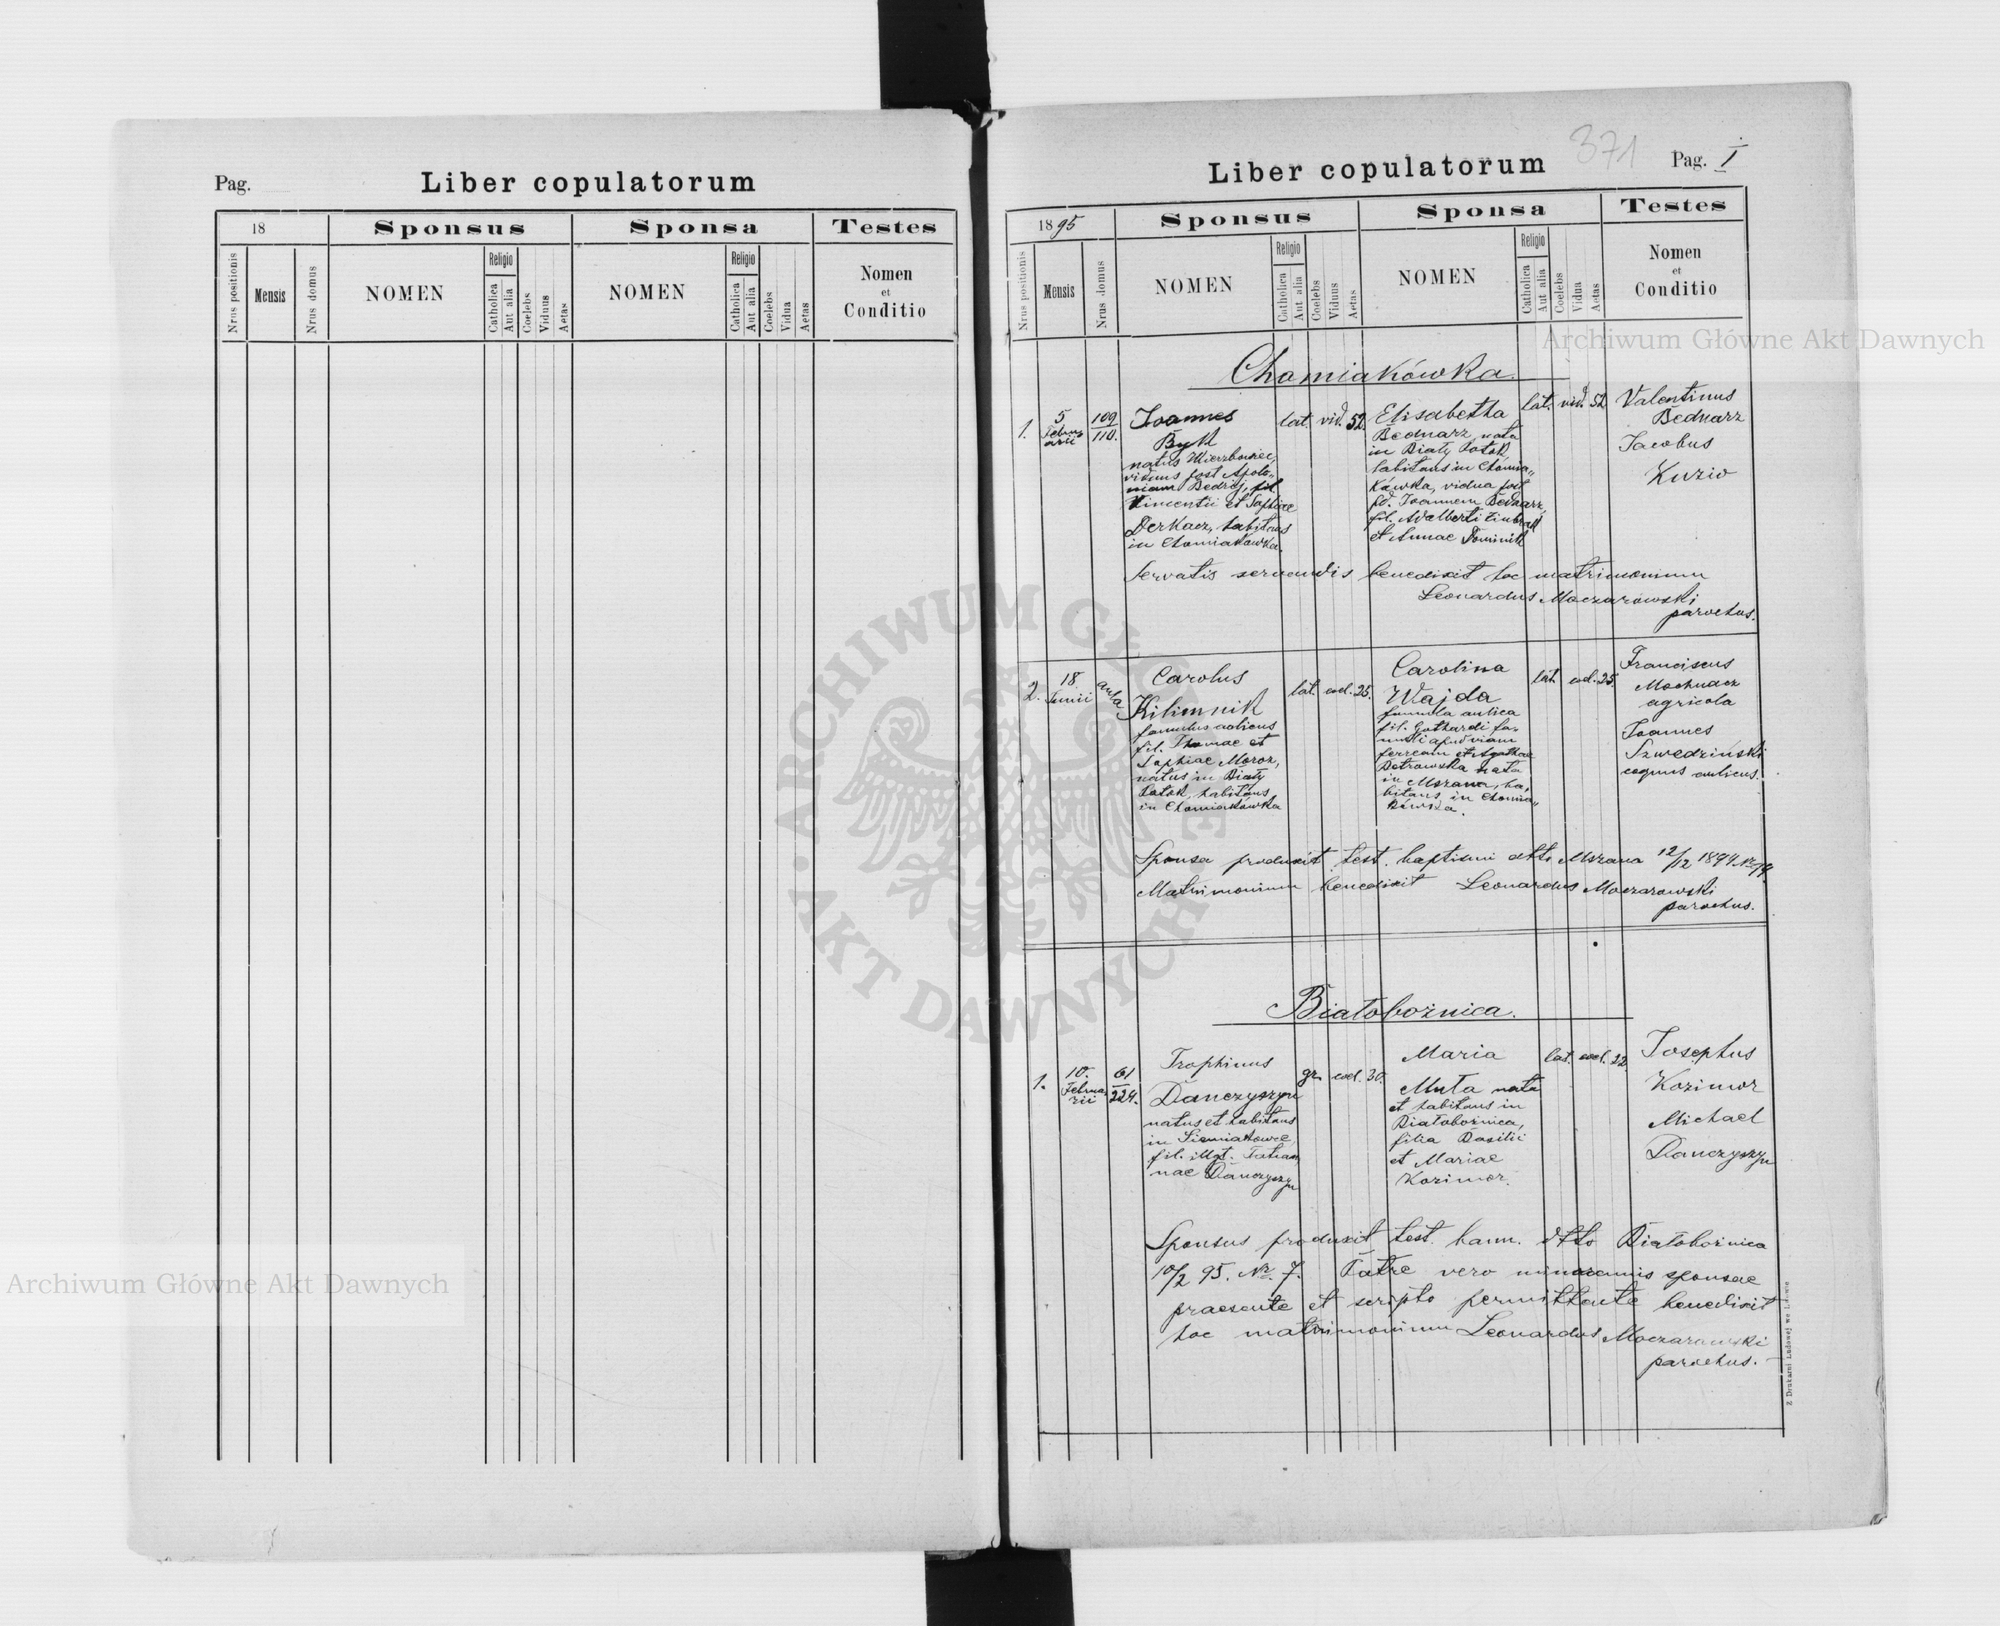 Pag.
Liber copulatorum
18
Sponsus
Sponsa
Testes
Nrus positionis
Mensis
Nrus domus
NOMEN
Religio
Catholica
Aut alia
Coelebs
Viduus
Aetas
NOMEN
Religio
Catholica
Aut alia
Coelebs
Vidua
Aetas
Nomen
et
Conditio
371
Liber copulatorum
Pag. I
1895
Sponsus
Sponsa
Testes
Nrus positionis
Mensis
Nrus domus
NOMEN
Religio
Catholica
Aut alia
Coelebs
Viduus
Aetas
NOMEN
Religio
Catholica
Aut alia
Coelebs
Vidua
Aetas
Nomen
et
Conditio
Chomiakówka.
1.
5
Febru-
arii
109
110.
Joannes
Byk
natus Wierzbowiec,
viduus post Apolo-
niam Bedrij, fil.
Vincentii et Sophiae
Derkacz, habitans
in Chomiakówka.
lat.
vid.
52.
Elisabetha
Bednarz, nata
in Biały Potok,
habitans in Chomia-
kówka, vidua post
Joannem Bednarz,
fil. Adalberti
et Annae Dominik
lat.
vid.
52
Valentinus
Bednarz
Jacobus
Kuziw
Servatis servandis benedixit hoc matrimonium
Leonardus Moczarowski
parochus.
2.
18
Junii
aula
Carolus
Kilimnik
famulus aulicus
fil. Thomae et
Sophiae Moroz,
natus in Biały
Potok, habitans
in Chomiakówka
lat.
coel.
25.
Carolina
Wajda
famula aulica
fil. Gothardi fa-
muli apud viam
ferream et Agathae
Petrowska nata
in Mszana, ha-
bitans in Chomia-
kówka.
lat.
coel.
25.
Franciscus
Mochnacz
agricola
Joannes
Szwedziński
coquus aulicus.
Sponsa produxit test. baptismi dtto Mszana 12/12 1894 Nr 74.
Matrimonium benedixit Leonardus Moczarowski
parochus.
Białobożnica.
1.
10.
Februa-
rii
61
224.
Trophimus
Danczyszyn
natus et habitans
in Siemiakowce,
fil. illgt. Tatian-
nae Danczyszyn
gr.
coel.
30.
Maria
Muta nata
et habitans in
Białobożnica,
filia Basilii
et Mariae
Kozimor.
lat.
coel.
22
Josephus
Kozimor
Michael
Danczyszyn
Sponsus produxit test. bann. dtto Białobożnica
10/2 95. Nr. 7. Patre vero minorennis sponsae
praesente et scripto permittente benedixit
hoc matrimonium Leonardus Moczarowski
parochus.
Z Drukarni Ludowej we Lwowie
Archiwum Główne Akt Dawnych
ARCHIWUM GŁÓWNE
AKT DAWNYCH
Archiwum Główne Akt Dawnych